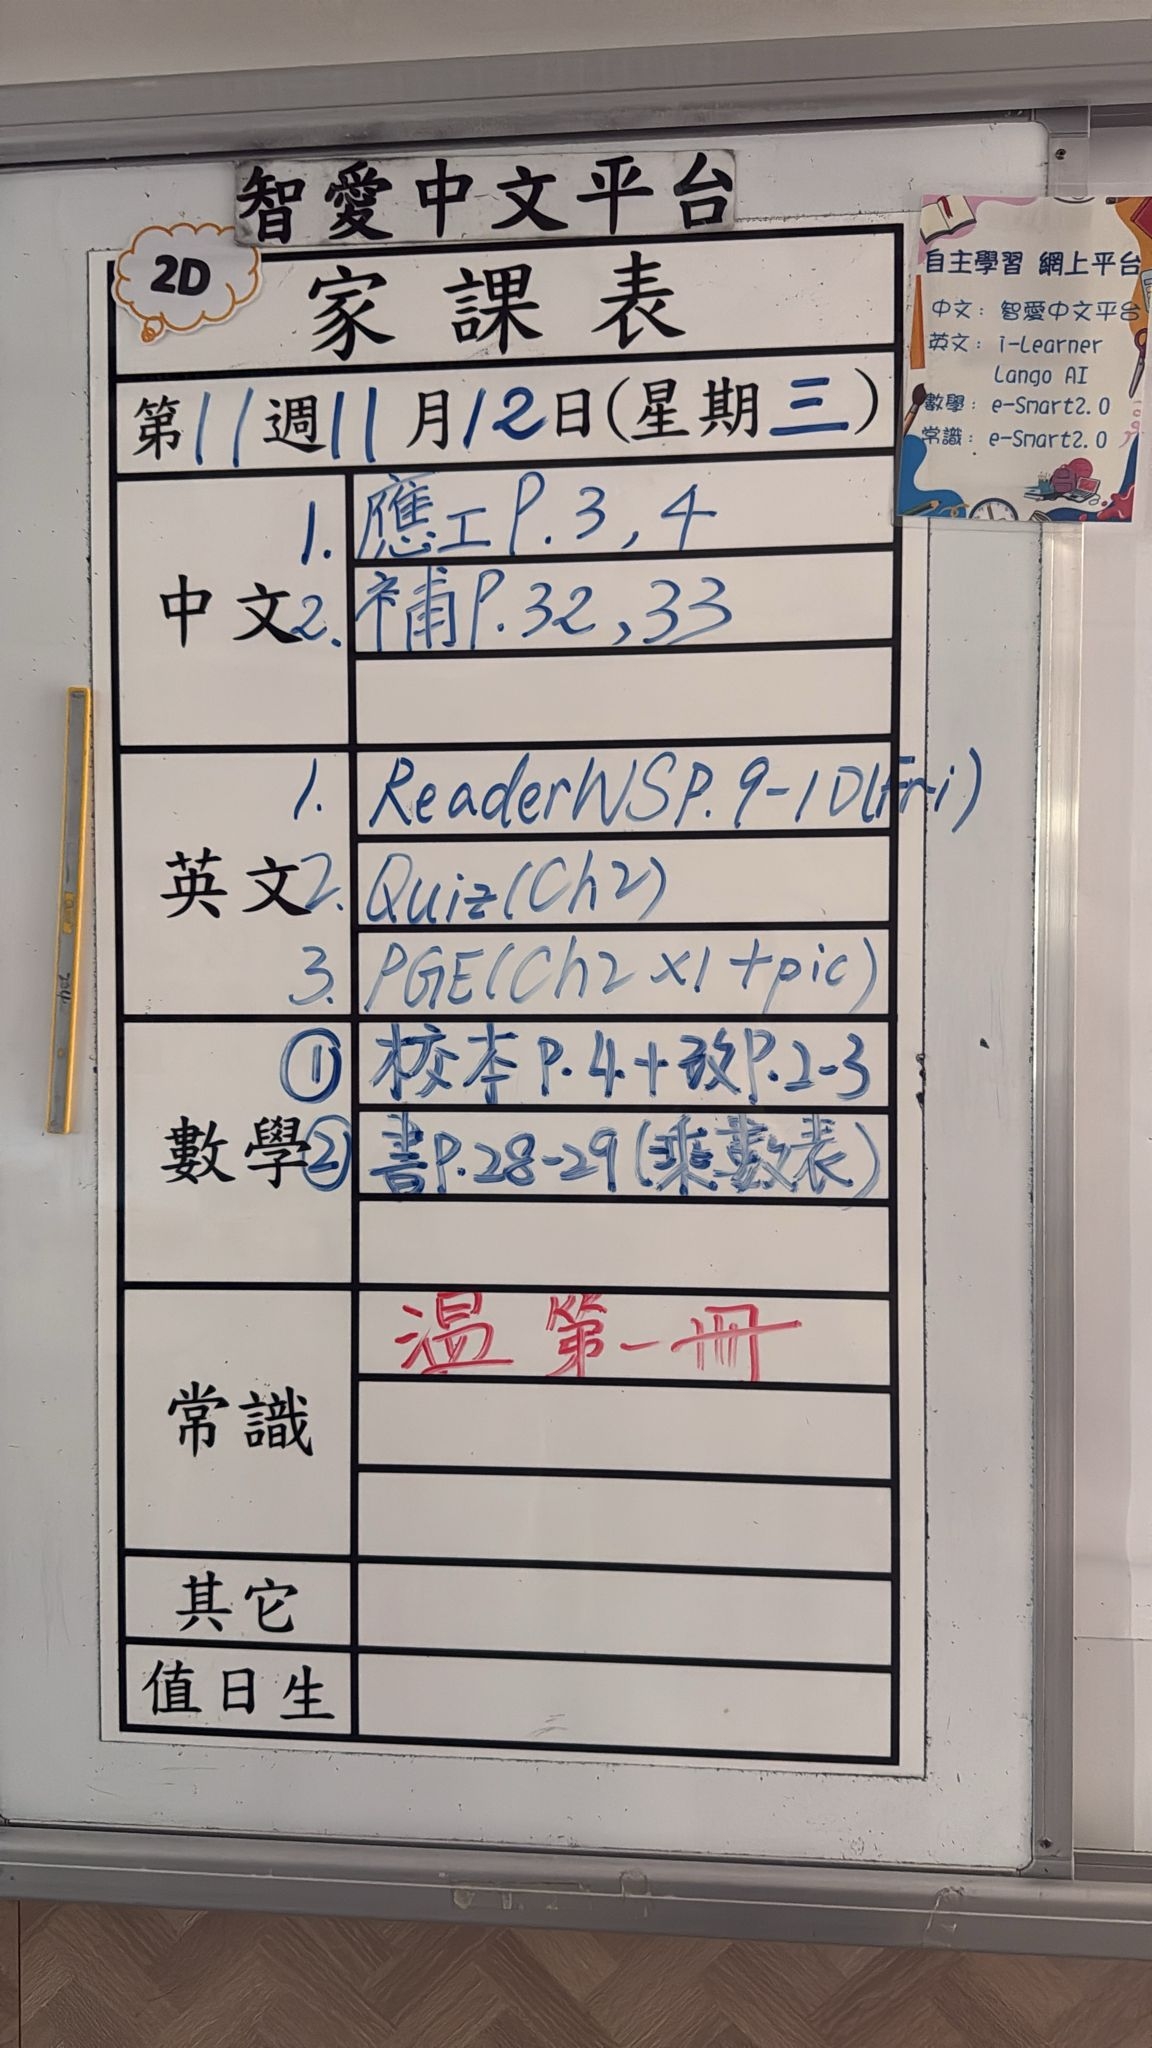 智愛中文平台
2D
家課表
第11週11月12日(星期三)
中文
1. 應工P.3,4
2. 補P.32,33
英文
1. ReaderWSP.9-10(Fri)
2. Quiz(Ch2)
3. PGE(Ch2 x1+pic)
數學
① 校本P.4+改P.2-3
② 書P.28-29(乘數表)
常識
溫第一冊
其它
值日生
自主學習 網上平台
中文：智愛中文平台
英文：i-Learner
Lango AI
數學：e-Smart2.0
常識：e-Smart2.0